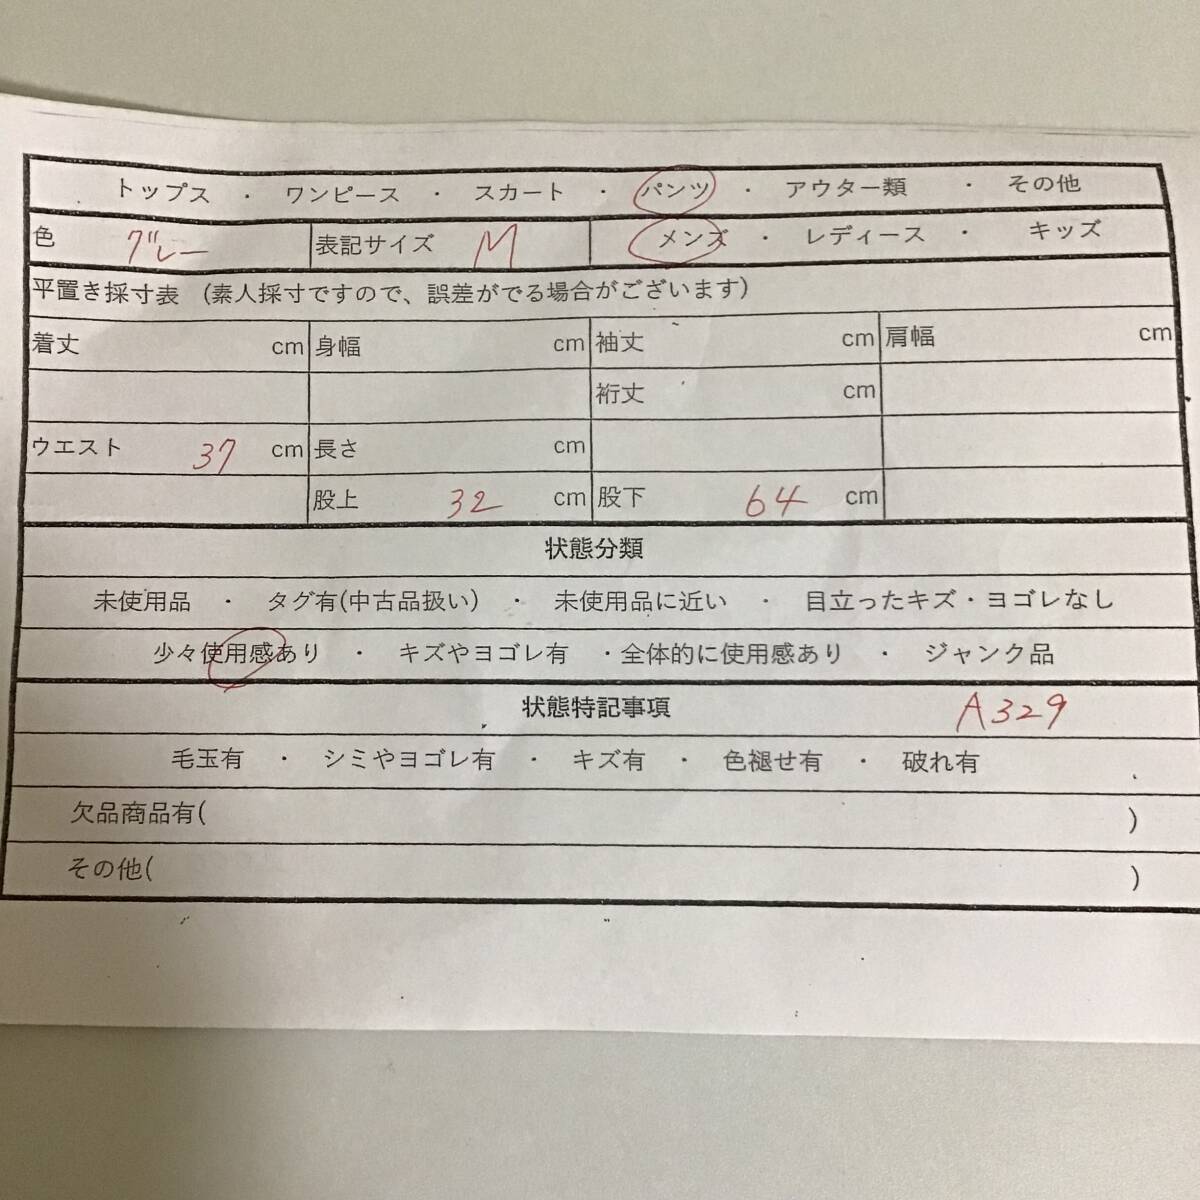 トップス ・ ワンピース ・ スカート ・ パンツ ・ アウター類 ・ その他
色 グレー 表記サイズ M メンズ ・ レディース ・ キッズ
平置き採寸表 (素人採寸ですので、誤差がでる場合がございます)
着丈 cm 身幅 cm 袖丈 cm 肩幅 cm
裄丈 cm
ウエスト 37 cm 長さ cm
股上 32 cm 股下 64 cm
状態分類
未使用品 ・ タグ有(中古品扱い) ・ 未使用品に近い ・ 目立ったキズ・ヨゴレなし
少々使用感あり ・ キズやヨゴレ有 ・全体的に使用感あり ・ ジャンク品
状態特記事項 A329
毛玉有 ・ シミやヨゴレ有 ・ キズ有 ・ 色褪せ有 ・ 破れ有
欠品商品有( )
その他( )